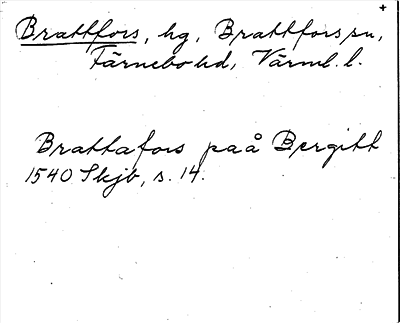 +
Brattfors, hg, Brattfors sn,
Färnebo hd, Värml. l.
Brattafors paå Bergitt
1540 Skjb, s. 14.